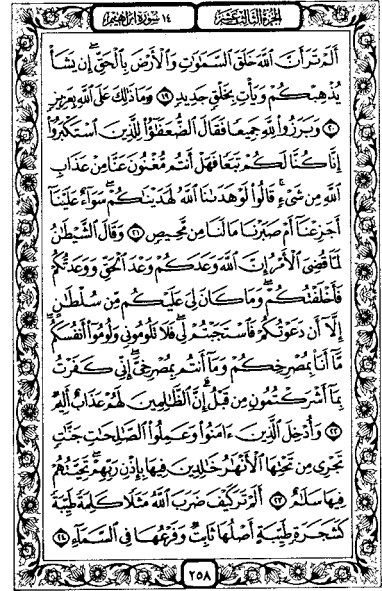 الجزء الثالث عشر
١٤ سورة إبراهيم
أَلَمْ تَرَ أَنَّ ٱللَّهَ خَلَقَ ٱلسَّمَٰوَٰتِ وَٱلْأَرْضَ بِٱلْحَقِّ ۚ إِن يَشَأْ
يُذْهِبْكُمْ وَيَأْتِ بِخَلْقٍ جَدِيدٍ ١٩ وَمَا ذَٰلِكَ عَلَى ٱللَّهِ بِعَزِيزٍ
٢٠ وَبَرَزُوا۟ لِلَّهِ جَمِيعًا فَقَالَ ٱلضُّعَفَٰٓؤُا۟ لِلَّذِينَ ٱسْتَكْبَرُوٓا۟
إِنَّا كُنَّا لَكُمْ تَبَعًا فَهَلْ أَنتُم مُّغْنُونَ عَنَّا مِنْ عَذَابِ
ٱللَّهِ مِن شَىْءٍ ۚ قَالُوا۟ لَوْ هَدَىٰنَا ٱللَّهُ لَهَدَيْنَٰكُمْ ۖ سَوَآءٌ عَلَيْنَآ
أَجَزِعْنَآ أَمْ صَبَرْنَا مَا لَنَا مِن مَّحِيصٍ ٢١ وَقَالَ ٱلشَّيْطَٰنُ
لَمَّا قُضِىَ ٱلْأَمْرُ إِنَّ ٱللَّهَ وَعَدَكُمْ وَعْدَ ٱلْحَقِّ وَوَعَدتُّكُمْ
فَأَخْلَفْتُكُمْ ۖ وَمَا كَانَ لِىَ عَلَيْكُم مِّن سُلْطَٰنٍ
إِلَّآ أَن دَعَوْتُكُمْ فَٱسْتَجَبْتُمْ لِى ۖ فَلَا تَلُومُونِى وَلُومُوٓا۟ أَنفُسَكُم ۖ
مَّآ أَنَا۠ بِمُصْرِخِكُمْ وَمَآ أَنتُم بِمُصْرِخِىَّ ۖ إِنِّى كَفَرْتُ
بِمَآ أَشْرَكْتُمُونِ مِن قَبْلُ ۗ إِنَّ ٱلظَّٰلِمِينَ لَهُمْ عَذَابٌ أَلِيمٌ
٢٢ وَأُدْخِلَ ٱلَّذِينَ ءَامَنُوا۟ وَعَمِلُوا۟ ٱلصَّٰلِحَٰتِ جَنَّٰتٍ
تَجْرِى مِن تَحْتِهَا ٱلْأَنْهَٰرُ خَٰلِدِينَ فِيهَا بِإِذْنِ رَبِّهِمْ ۖ تَحِيَّتُهُمْ
فِيهَا سَلَٰمٌ ٢٣ أَلَمْ تَرَ كَيْفَ ضَرَبَ ٱللَّهُ مَثَلًا كَلِمَةً طَيِّبَةً
كَشَجَرَةٍ طَيِّبَةٍ أَصْلُهَا ثَابِتٌ وَفَرْعُهَا فِى ٱلسَّمَآءِ ٢٤
٢٥٨